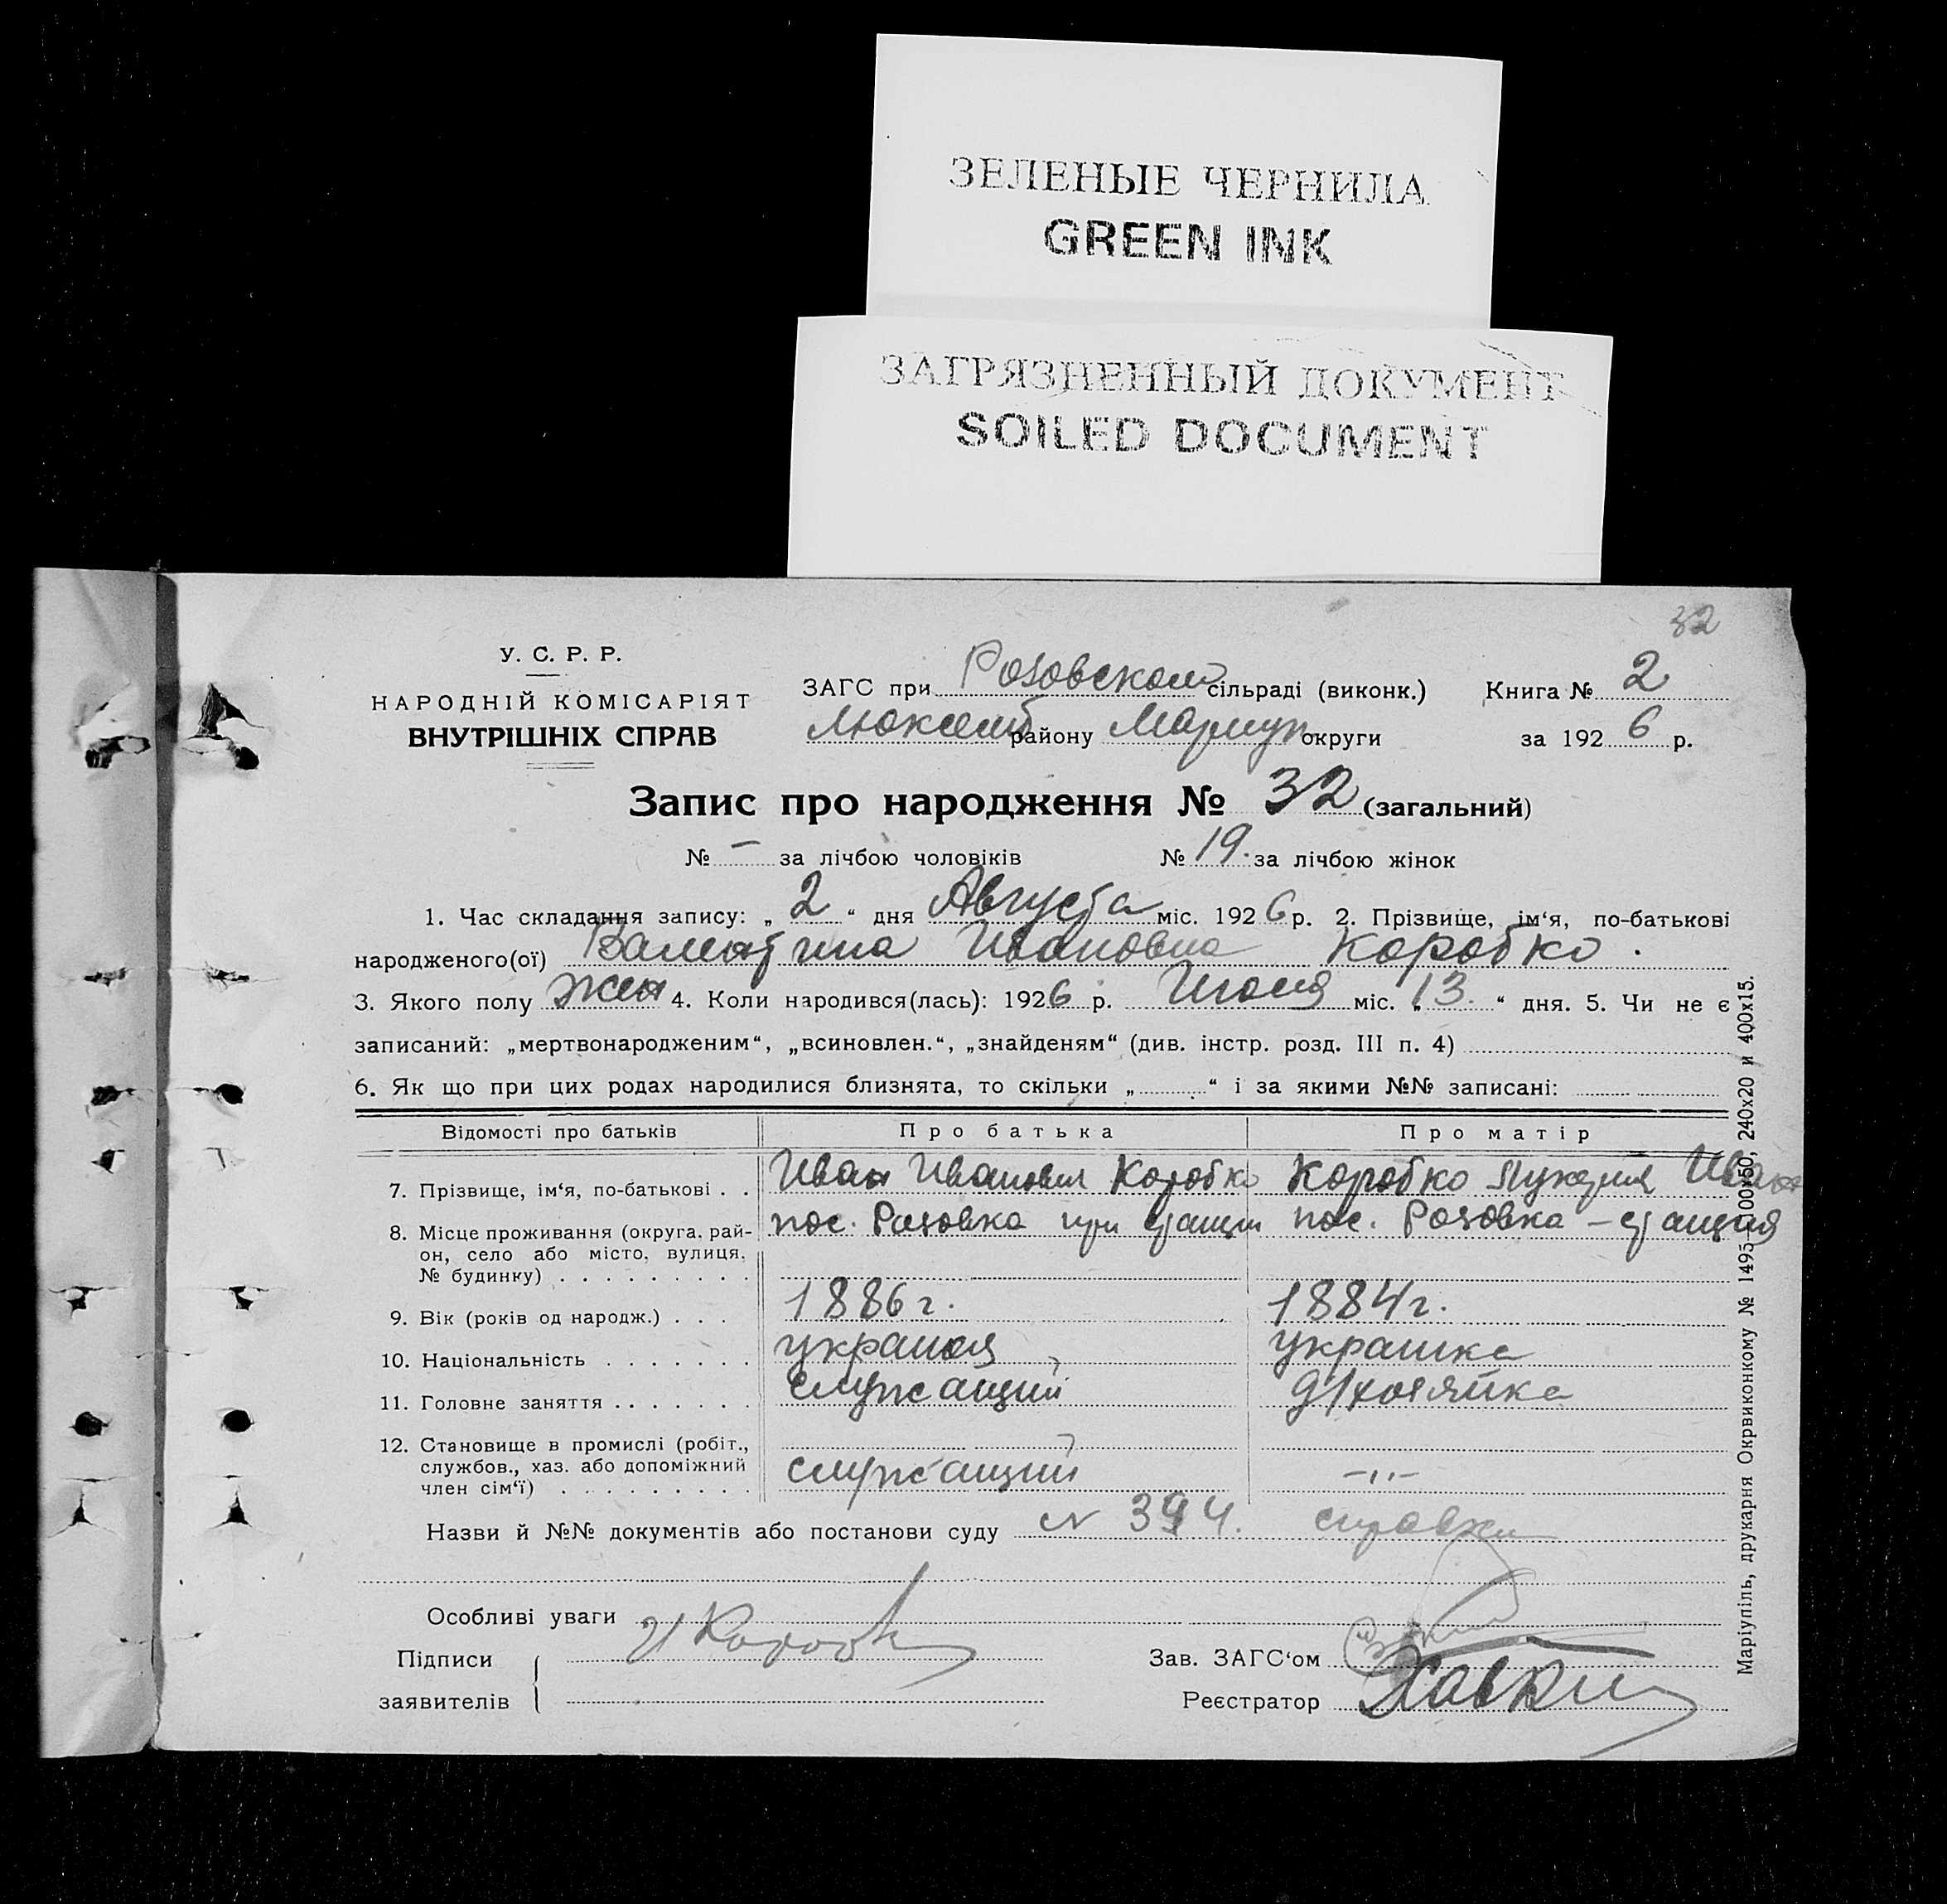 ЗЕЛЕНЫЕ ЧЕРНИЛА
GREEN INK
ЗАГРЯЗНЕННЫЙ ДОКУМЕНТ
SOILED DOCUMENT
32
У. С. Р. Р.
НАРОДНІЙ КОМІСАРІЯТ
ВНУТРІШНІХ СПРАВ
ЗАГС при Розовском сільраді (виконк.) Книга № 2
Люксемб району Мариуп округи за 192 6 р.
Запис про народження № 32 (загальний)
№ – за лічбою чоловіків № 19. за лічбою жінок
1. Час складання запису: „ 2 “ дня Августа міс. 192 6 р. 2. Прізвище, ім‘я, по-батькові
народженого(ої) Валентина Ивановна Коробко.
3. Якого полу жен 4. Коли народився(лась): 1926 р. Июня міс. „ 13. “ дня. 5. Чи не є
записаний: „мертвонародженим“, „всиновлен.“, „знайденям“ (див. інстр. розд. III п. 4)
6. Як що при цих родах народилися близнята, то скільки „ “ і за якими №№ записані:
Відомості про батьків Про батька Про матір
7. Прізвище, ім‘я, по-батькові . . Иван Иванович Коробко Коробко Иван
8. Місце проживання (округа, рай- пос. Розовка при станции пос. Розовка – станция
он, село або місто, вулиця,
№ будинку) . . . . . . . . .
9. Вік (років од народж.) . . . 1886 г. 1884 г.
10. Національність . . . . . . . украинка
11. Головне заняття . . . . . . . служащий д/хозяйка
12. Становище в промислі (робіт.,
службов., хаз. або допоміжний служащий –"–
член сім‘ї) . . . . . . . . .
Назви й №№ документів або постанови суду № 394. справки
Особливі уваги
Підписи И Коробк Зав. ЗАГС‘ом
заявителів Реєстратор Хавкин
Маріупіль, друкарня Окрвиконкому № 1495—100х50, 240х20 и 400х15.